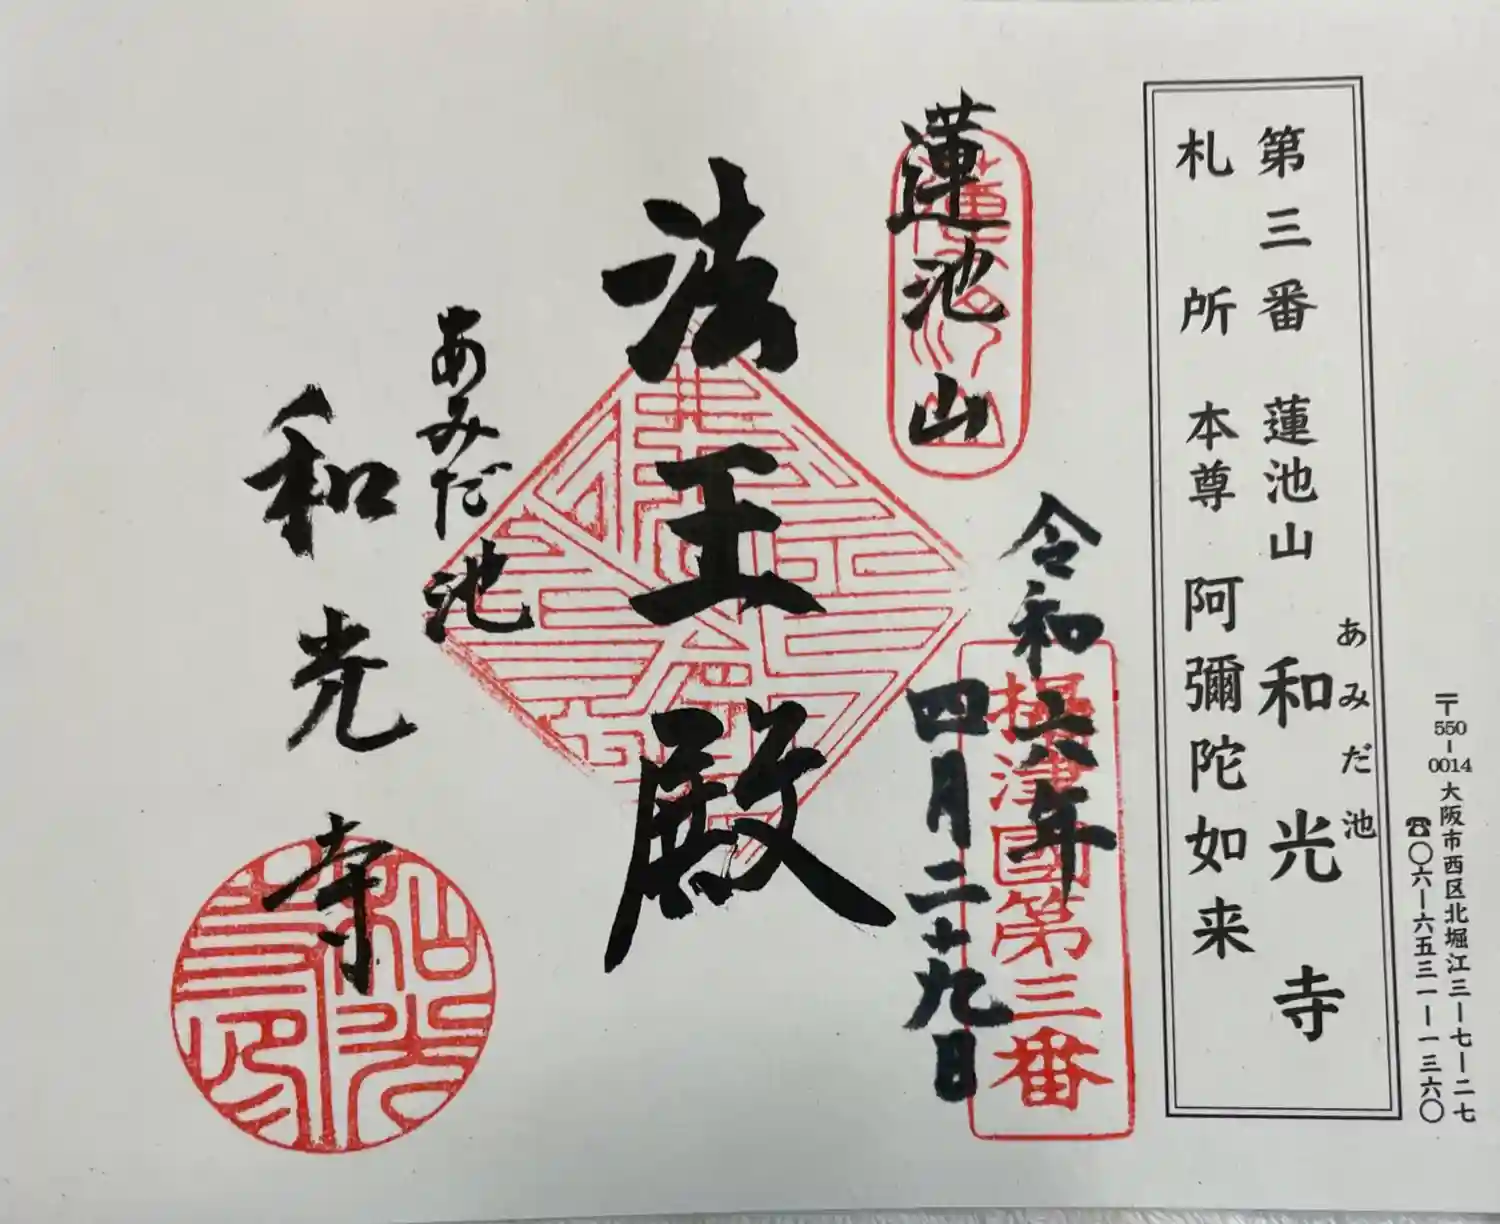 〒550-0014 大阪市西区北堀江三-七-二七
☎〇六-六五三一-一三六〇
あみだ池
第三番 蓮池山 和光寺
札所 本尊 阿彌陀如来
蓮池山
令和六年
四月二十九日
摂津國第三番
法王殿
あみだ池
和光寺